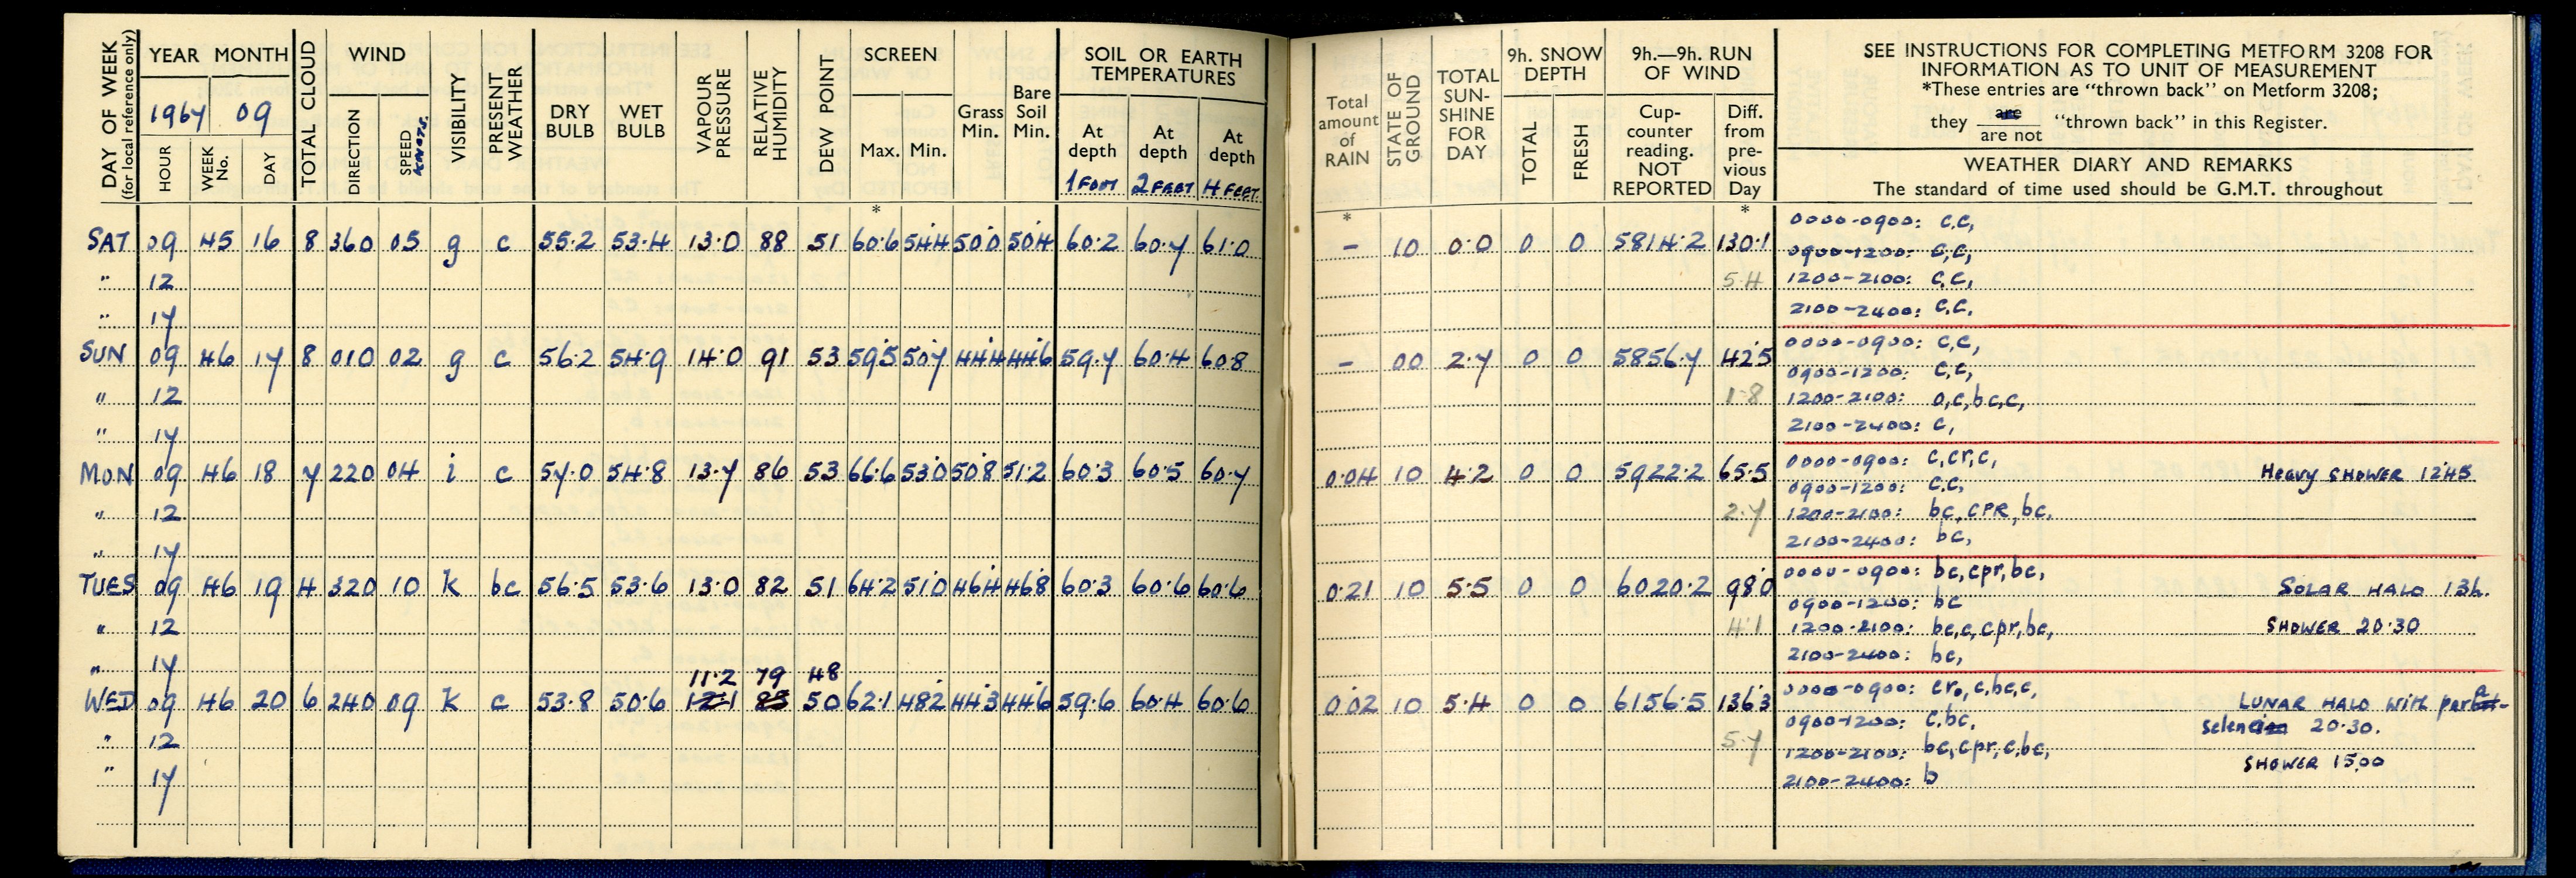 DAY OF WEEK
(for local reference only)
YEAR MONTH
1967 09
HOUR
WEEK No.
DAY
TOTAL CLOUD
WIND
DIRECTION
SPEED
KNOTS.
VISIBILITY
PRESENT WEATHER
DRY BULB
WET BULB
VAPOUR PRESSURE
RELATIVE HUMIDITY
DEW POINT
SCREEN
Max. Min.
Grass Min.
Bare Soil Min.
SOIL OR EARTH
TEMPERATURES
At depth 1 FOOT
At depth 2 FEET
At depth 4 FEET
Total amount of RAIN
STATE OF GROUND
TOTAL SUN-SHINE FOR DAY
9h. SNOW DEPTH
TOTAL
FRESH
9h.—9h. RUN OF WIND
Cup-counter reading. NOT REPORTED
Diff. from pre-vious Day
SEE INSTRUCTIONS FOR COMPLETING METFORM 3208 FOR
INFORMATION AS TO UNIT OF MEASUREMENT
*These entries are "thrown back" on Metform 3208;
they are
are not "thrown back" in this Register.
WEATHER DIARY AND REMARKS
The standard of time used should be G.M.T. throughout
* * *
SAT 09 45 16 8 360 05 g c 55.2 53.4 13.0 88 51 60.6 54.4 50.0 50.4 60.2 60.7 61.0 - 10 0.0 0 0 5814.2 130.1
0000-0900: c,c,
0900-1200: c,c,
" 12 5.4 1200-2100: c,c,
" 17 2100-2400: c,c,
SUN 09 46 17 8 010 02 g c 56.2 54.9 14.0 91 53 59.5 50.7 44.4 44.6 59.7 60.4 60.8 - 00 2.7 0 0 5856.7 42.5
0000-0900: c,c,
0900-1200: c,c,
" 12 1.8 1200-2100: o,c,bc,c,
" 17 2100-2400: c,
MON 09 46 18 7 220 04 i c 57.0 54.8 13.7 86 53 66.6 53.0 50.8 51.2 60.3 60.5 60.7 0.04 10 4.2 0 0 5922.2 65.5
0000-0900: c,cr,c, Heavy SHOWER 12.45
0900-1200: c,c,
" 12 2.7 1200-2100: bc,CPR,bc,
" 17 2100-2400: bc,
TUES 09 46 19 4 320 10 k bc 56.5 53.6 13.0 82 51 64.2 51.0 46.4 46.8 60.3 60.6 60.6 0.21 10 5.5 0 0 6020.2 98.0
0000-0900: bc,cpr,bc, SOLAR HALO 13h.
0900-1200: bc
" 12 4.1 1200-2100: bc,c,cpr,bc, SHOWER 20.30
" 17 2100-2400: bc,
11.2 79 48
WED 09 46 20 6 240 09 k c 53.8 50.6 12.1 85 50 62.1 48.2 44.3 44.6 59.6 60.4 60.6 0.02 10 5.4 0 0 6156.5 136.3
0000-0900: cro,c,bc,c, LUNAR HALO with
0900-1200: c,bc, 20.30.
" 12 5.7 1200-2100: bc,cpr,c,bc, SHOWER 15.00
" 17 2100-2400: b